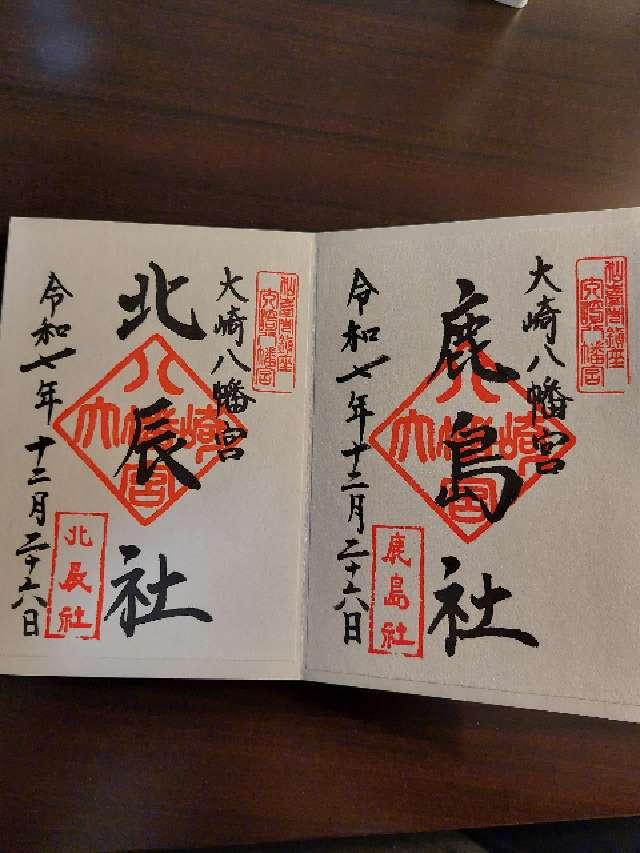 仙臺總鎮座
大崎八幡宮
大崎八幡宮
鹿島社
八幡宮
大崎
鹿島社
令和七年十二月二十六日
仙臺總鎮座
大崎八幡宮
大崎八幡宮
北辰社
八幡宮
大崎
北辰社
令和七年十二月二十六日